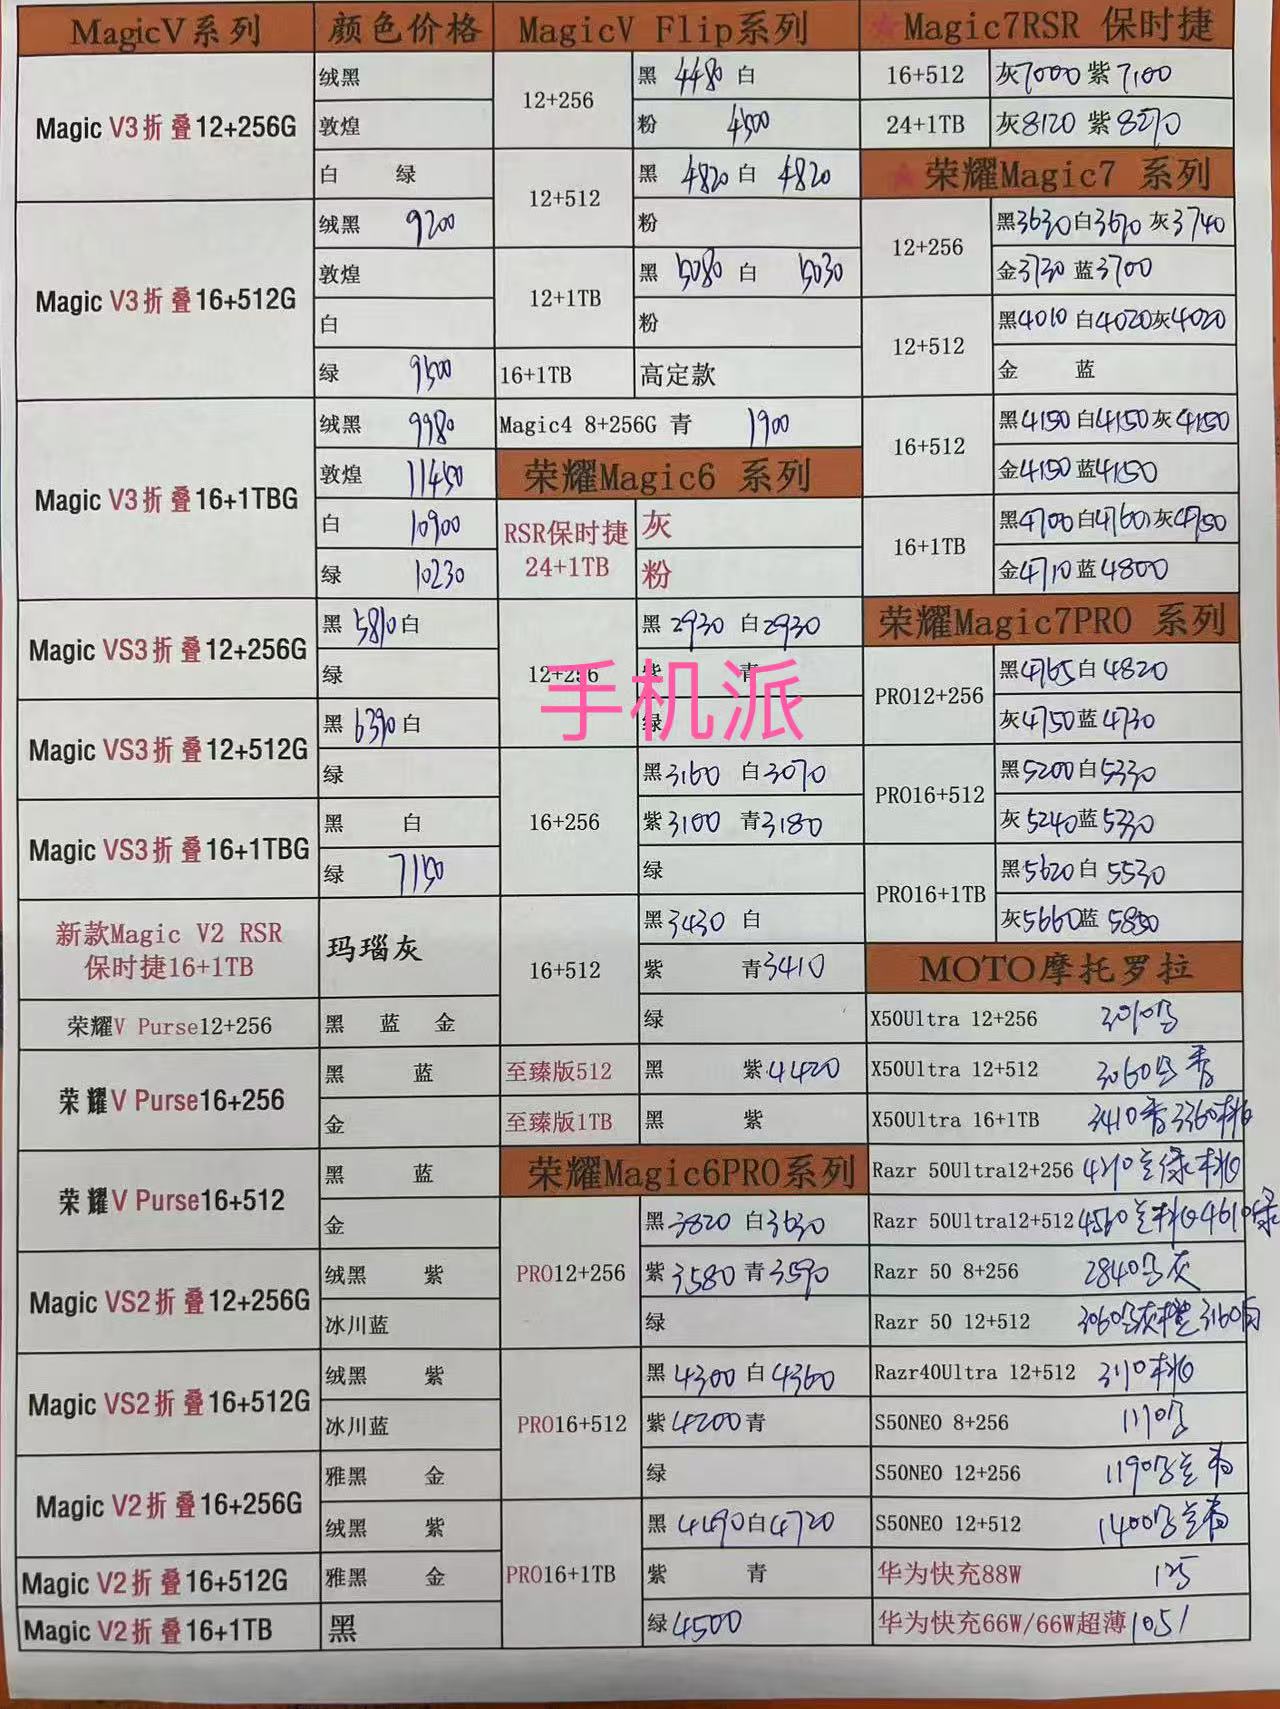 MagicV系列 颜色价格
Magic V3折叠12+256G
绒黑
敦煌
白 绿
Magic V3折叠16+512G
绒黑 9200
敦煌
白
绿 9500
Magic V3折叠16+1TBG
绒黑 9980
敦煌 11450
白 10900
绿 10230
Magic VS3折叠12+256G
黑 5810 白
绿
Magic VS3折叠12+512G
黑 6390 白
绿
Magic VS3折叠16+1TBG
黑 白
绿 7150
新款Magic V2 RSR
保时捷16+1TB
玛瑙灰
荣耀V Purse12+256
黑 蓝 金
荣耀V Purse16+256
黑 蓝
金
荣耀V Purse16+512
黑 蓝
金
Magic VS2折叠12+256G
绒黑 紫
冰川蓝
Magic VS2折叠16+512G
绒黑 紫
冰川蓝
Magic V2折叠16+256G
雅黑 金
绒黑 紫
Magic V2折叠16+512G
雅黑 金
Magic V2折叠16+1TB
黑
MagicV Flip系列
12+256
黑 4480 白
粉 4500
12+512
黑 4820 白 4820
粉
12+1TB
黑 5080 白 5030
粉
16+1TB 高定款
Magic4 8+256G 青 1900
荣耀Magic6 系列
RSR保时捷
24+1TB
灰
粉
12+256
黑2930 白2930
紫 青
绿
手机派
16+256
黑3160 白3070
紫3100 青3180
绿
16+512
黑3430 白
紫 青3410
绿
至臻版512 黑 紫4420
至臻版1TB 黑 紫
荣耀Magic6PRO系列
PRO12+256
黑3820 白3630
紫3580 青3590
绿
PRO16+512
黑4300 白4360
紫4200青
绿
PRO16+1TB
黑 4490白4720
紫 青
绿4500
Magic7RSR 保时捷
16+512 灰7000 紫7100
24+1TB 灰8120 紫8270
荣耀Magic7 系列
12+256
黑3630白3670 灰3740
金3730 蓝3700
12+512
黑4010 白4020灰4020
金 蓝
16+512
黑4150白4150灰4150
金4150蓝4150
16+1TB
黑4700白4760灰4750
金4710蓝4800
荣耀Magic7PRO 系列
PRO12+256
黑4765白4820
灰4750蓝4730
PRO16+512
黑5200白5330
灰5240蓝5330
PRO16+1TB
黑5620白5530
灰5660蓝5850
MOTO摩托罗拉
X50Ultra 12+256
X50Ultra 12+512 3060
X50Ultra 16+1TB 3410 3360
Razr 50Ultra12+256 4210
Razr 50Ultra12+512 4560 4610
Razr 50 8+256 2840 灰
Razr 50 12+512 3060 灰橙3160白
Razr40Ultra 12+512
S50NEO 8+256
S50NEO 12+256 1190
S50NEO 12+512 1400
华为快充88W 125
华为快充66W/66W超薄 105